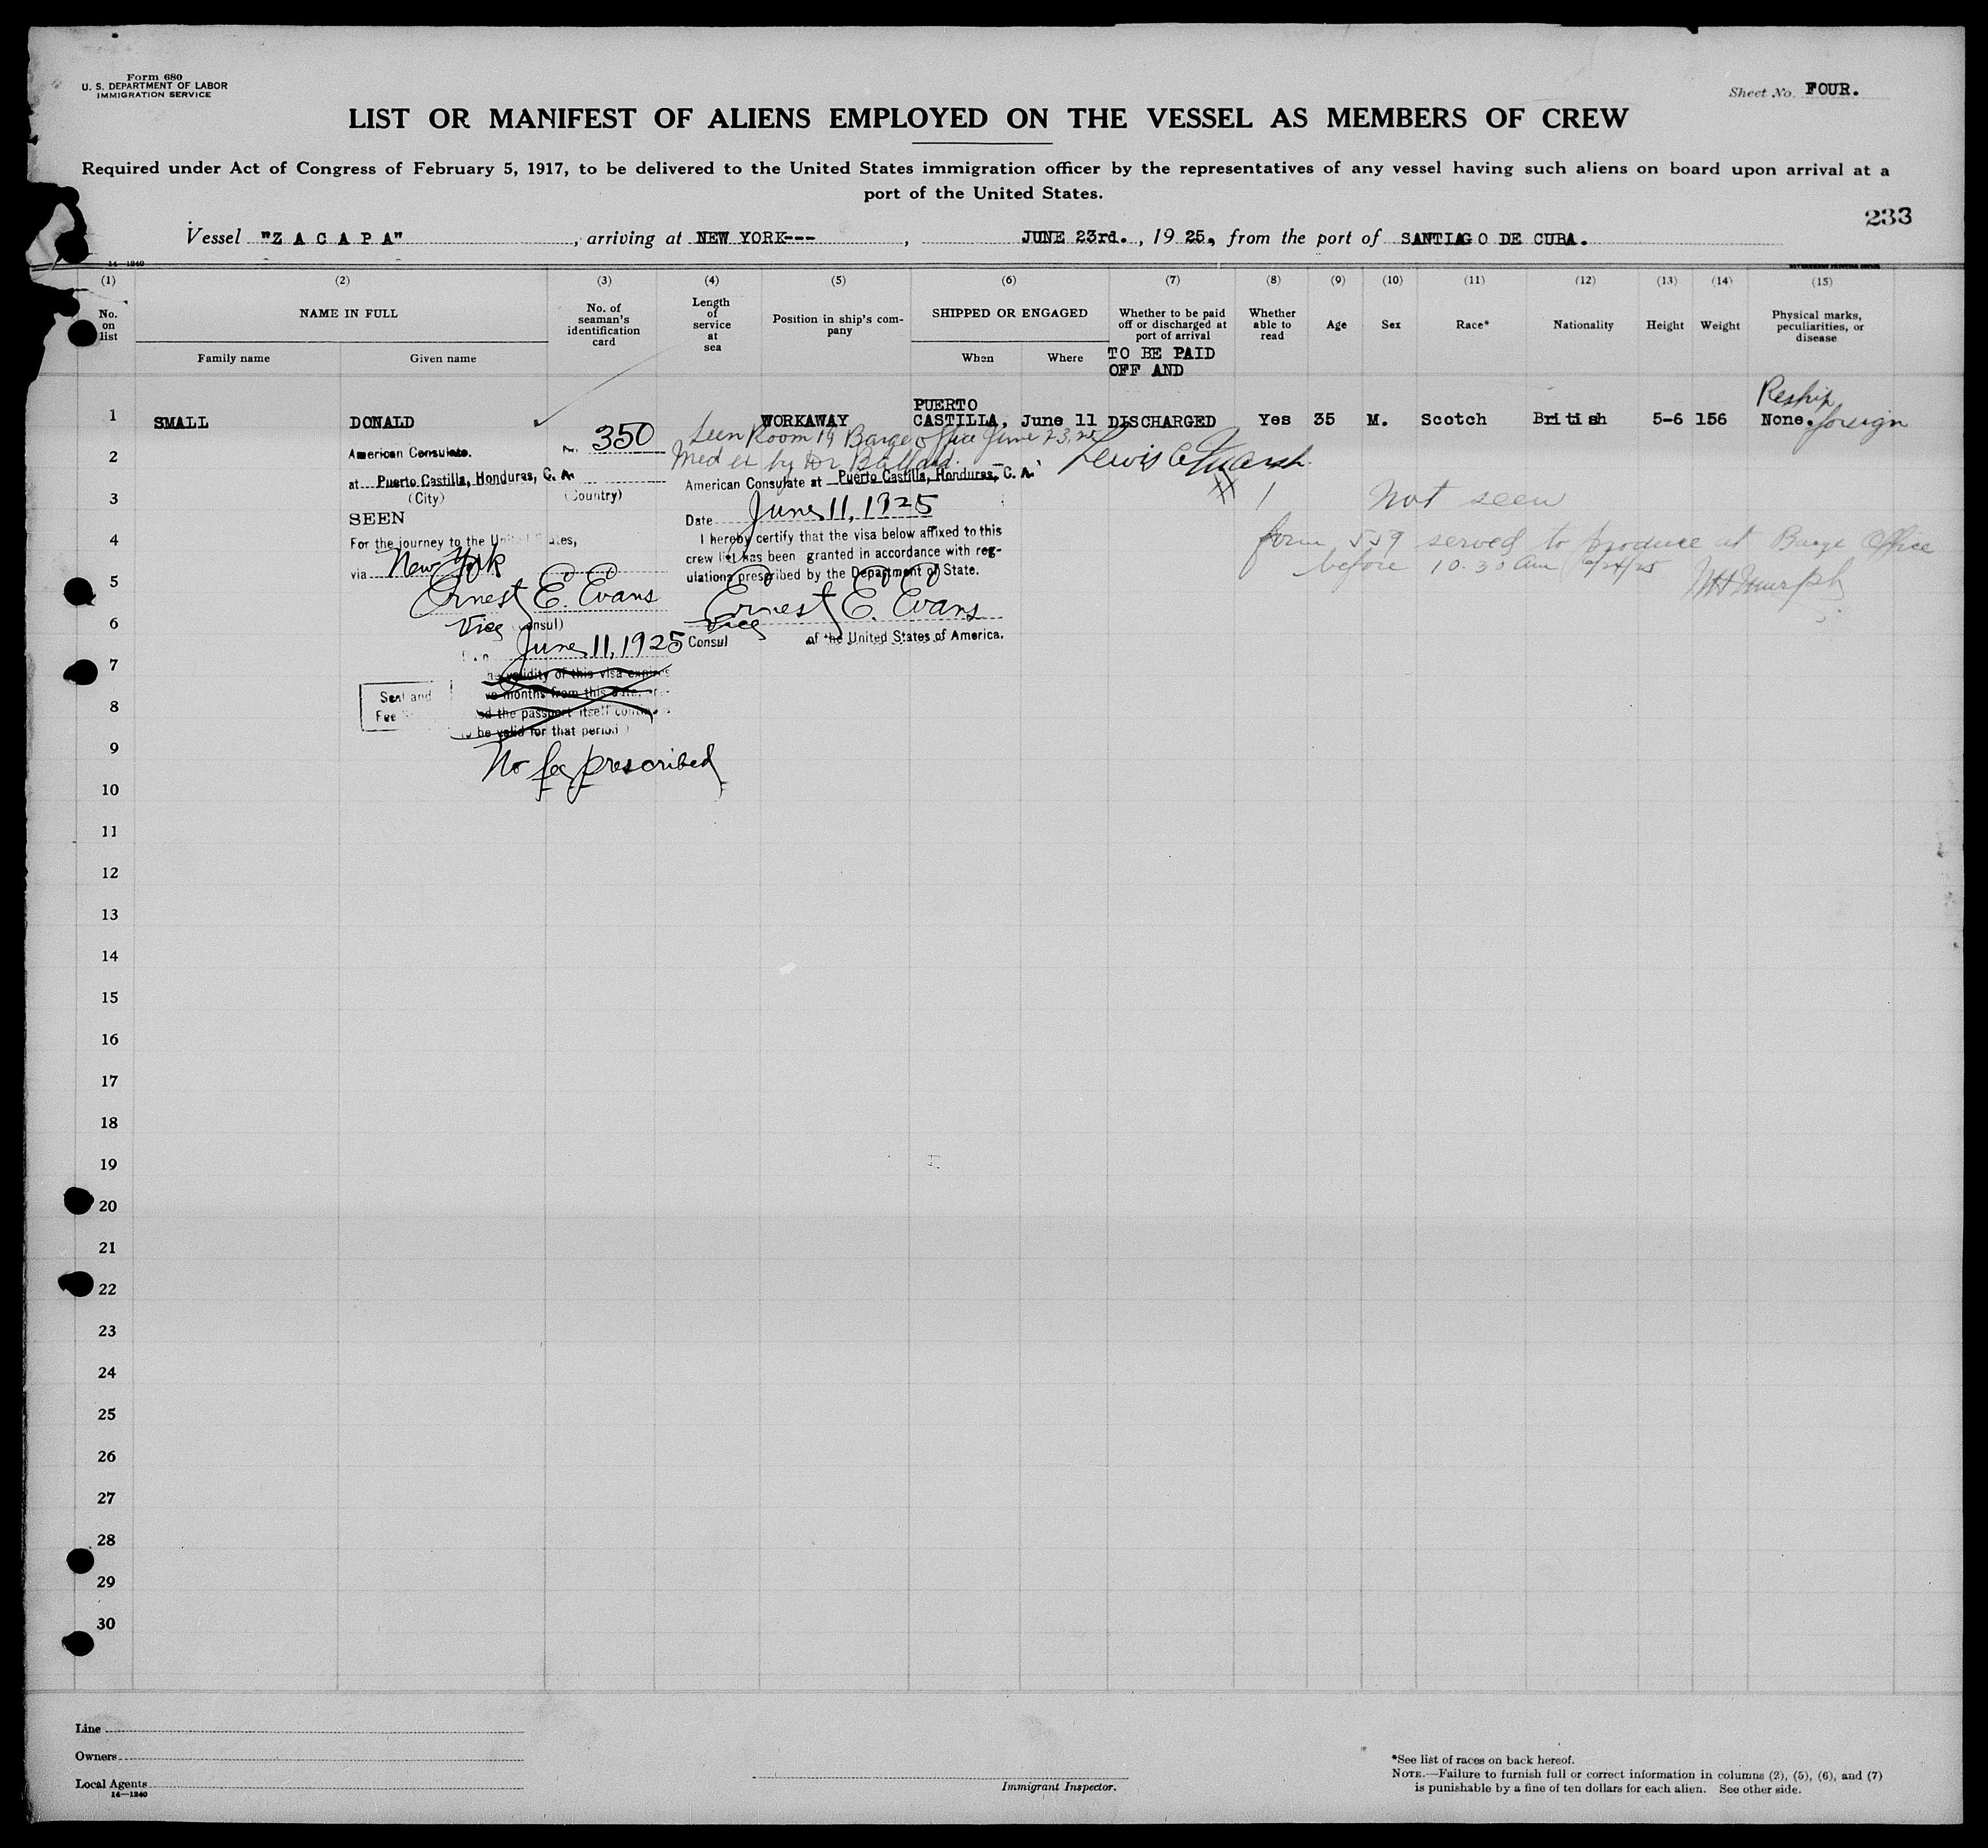 Form 680
U. S. DEPARTMENT OF LABOR
IMMIGRATION SERVICE
Sheet No. FOUR.
LIST OR MANIFEST OF ALIENS EMPLOYED ON THE VESSEL AS MEMBERS OF CREW
Required under Act of Congress of February 5, 1917, to be delivered to the United States immigration officer by the representatives of any vessel having such aliens on board upon arrival at a
port of the United States.
233
Vessel "Z A C A P A", arriving at NEW YORK---, JUNE 23rd., 1925, from the port of SANTIAGO DE CUBA.
14-1240
GOVERNMENT PRINTING OFFICE
(1) (2) (3) (4) (5) (6) (7) (8) (9) (10) (11) (12) (13) (14) (15)
No. on list
NAME IN FULL
Family name
Given name
No. of seaman's identification card
Length of service at sea
Position in ship's company
SHIPPED OR ENGAGED
When
Where
Whether to be paid off or discharged at port of arrival
TO BE PAID
OFF AND
Whether able to read
Age
Sex
Race*
Nationality
Height
Weight
Physical marks, peculiarities, or disease
1 SMALL DONALD WORKAWAY PUERTO CASTILLA, June 11 DISCHARGED Yes 35 M. Scotch British 5-6 156 None.
Reship foreign
Seen Room 19 Barge office June 23, 25
Med ex by Dr Ballard.
Lewis C Marsh
American Consulate.
No. 350
at Puerto Castilla, Honduras, C. A.
(City) (Country)
SEEN
For the journey to the United States,
via New York
Ernest E. Evans
Vice Consul)
June 11, 1925
The validity of this visa expires
months from this date,
the passport itself continues
to be valid for that period)
Seal and
Fee
No fee prescribed
American Consulate at Puerto Castilla, Honduras, C. A.
Date June 11, 1925
I hereby certify that the visa below affixed to this
crew list has been granted in accordance with reg-
ulations prescribed by the Department of State.
Ernest E. Evans
Vice
Consul of the United States of America.
1 Not seen
form 559 served to produce at Barge Office
before 10.30 am 6/24/25 Murphy
2
3
4
5
6
7
8
9
10
11
12
13
14
15
16
17
18
19
20
21
22
23
24
25
26
27
28
29
30
Line
Owners
Local Agents
14-1240
Immigrant Inspector.
*See list of races on back hereof.
NOTE.—Failure to furnish full or correct information in columns (2), (5), (6), and (7)
is punishable by a fine of ten dollars for each alien. See other side.